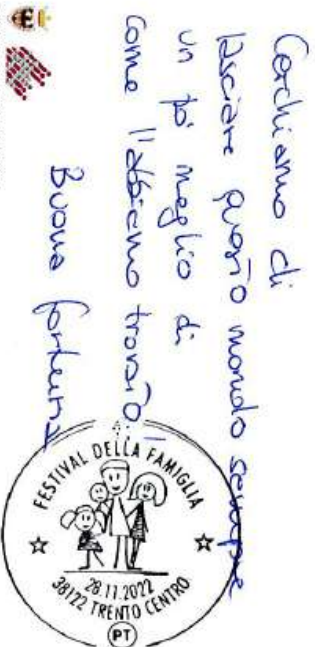 Cerchiamo di
lasciare questo mondo sempre
un pò meglio di
come l'abbiamo trovato!
Buona fortuna
FESTIVAL DELLA FAMIGLIA
28.11.2022
38122 TRENTO CENTRO
PT